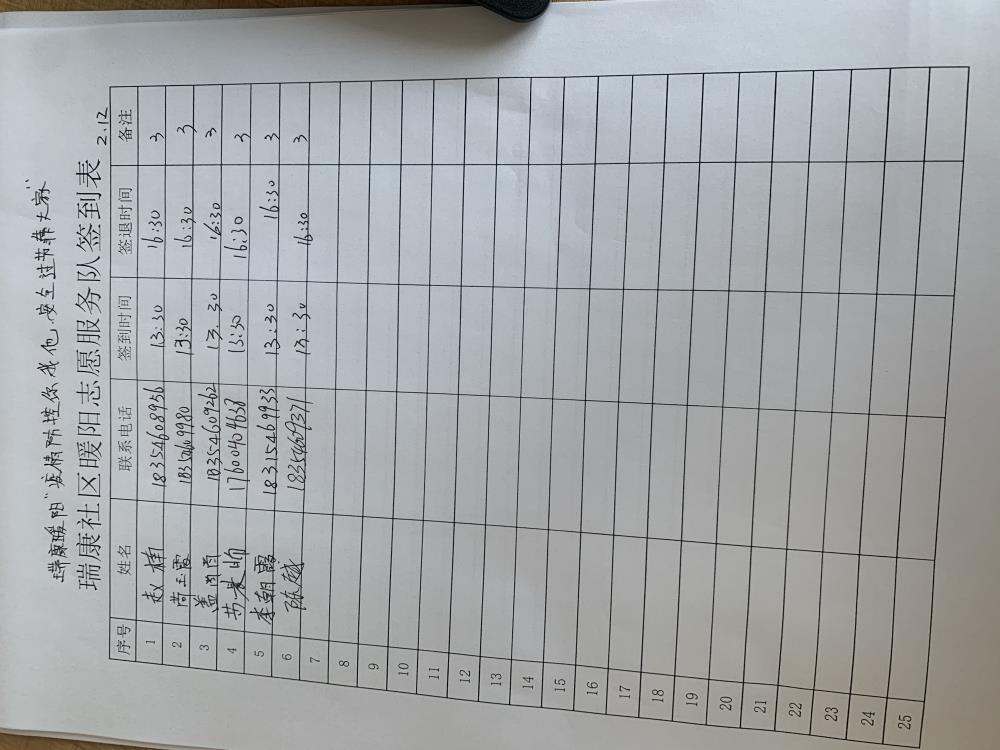 瑞康暖阳"疫情防控你我他,安全过节靠大家"
瑞康社区暖阳志愿服务队签到表 2.12
序号 姓名 联系电话 签到时间 签退时间 备注
1 赵楠 18354608956 13:30 16:30 3
2 18354609980 13:30 16:30 3
3 盖雨雨 18354609262 13:30 16:30 3
4 17600404638 13:30 16:30 3
5 李朝霞 18315469933 13:30 16:30 3
6 陈越 18354609371 13:30 16:30 3
7
8
9
10
11
12
13
14
15
16
17
18
19
20
21
22
23
24
25